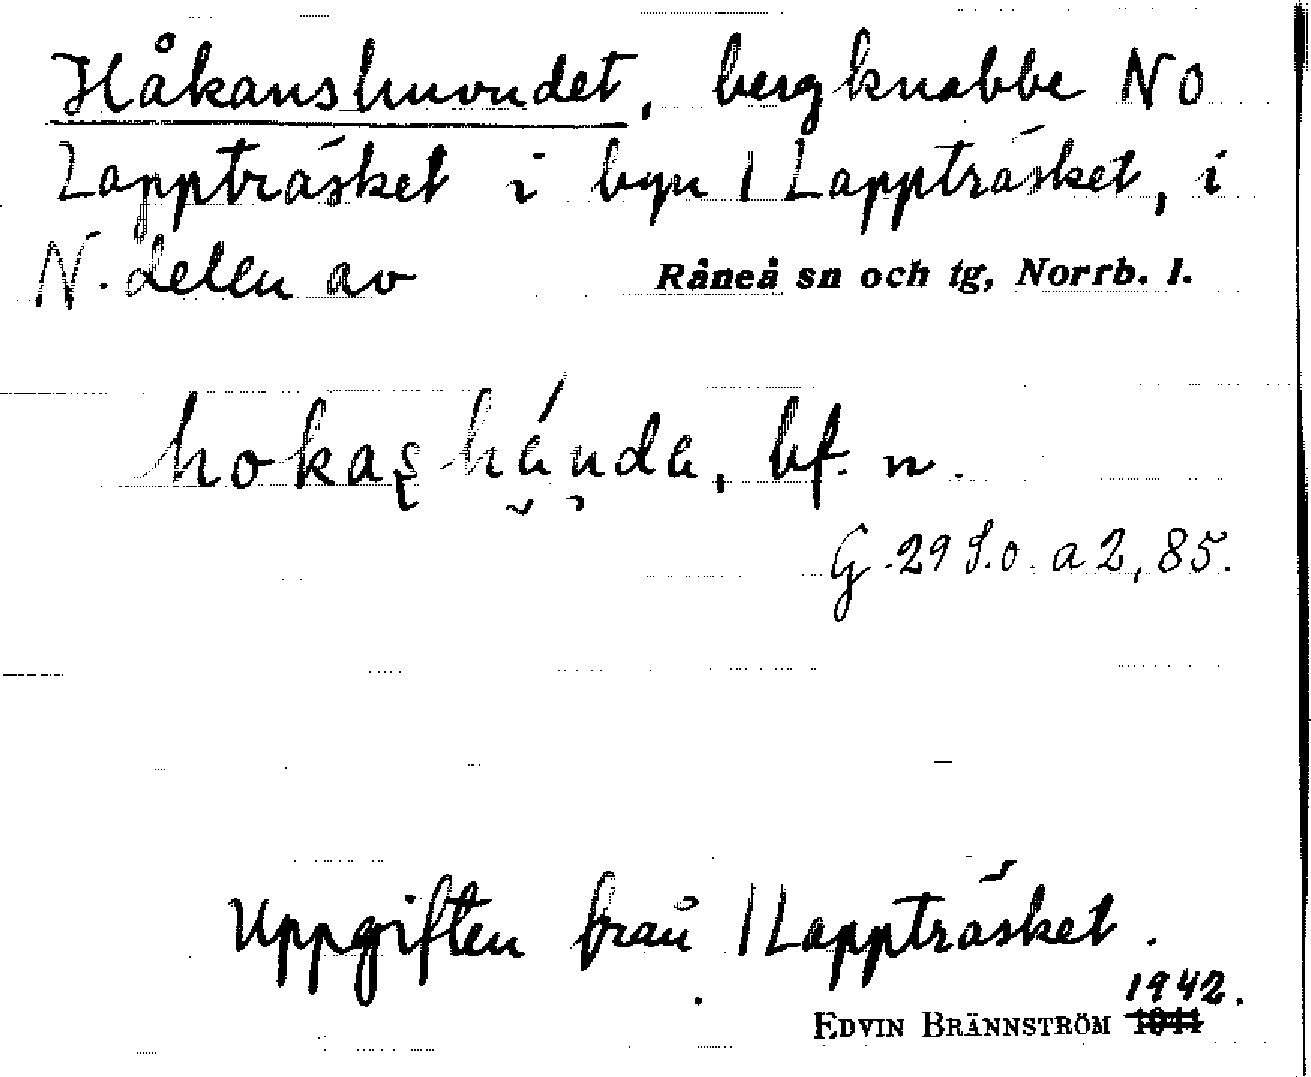 Håkanshuvudet, bergknabbe NO
Lappträsket i byn 1 Lappträsket, i
N. delen av Råneå sn och tg, Norrb. l.
bf. n.
G. 29 S.o. a 2, 85.
Uppgiften från 1 Lappträsket.
1942.
EDVIN BRÄNNSTRÖM 1941